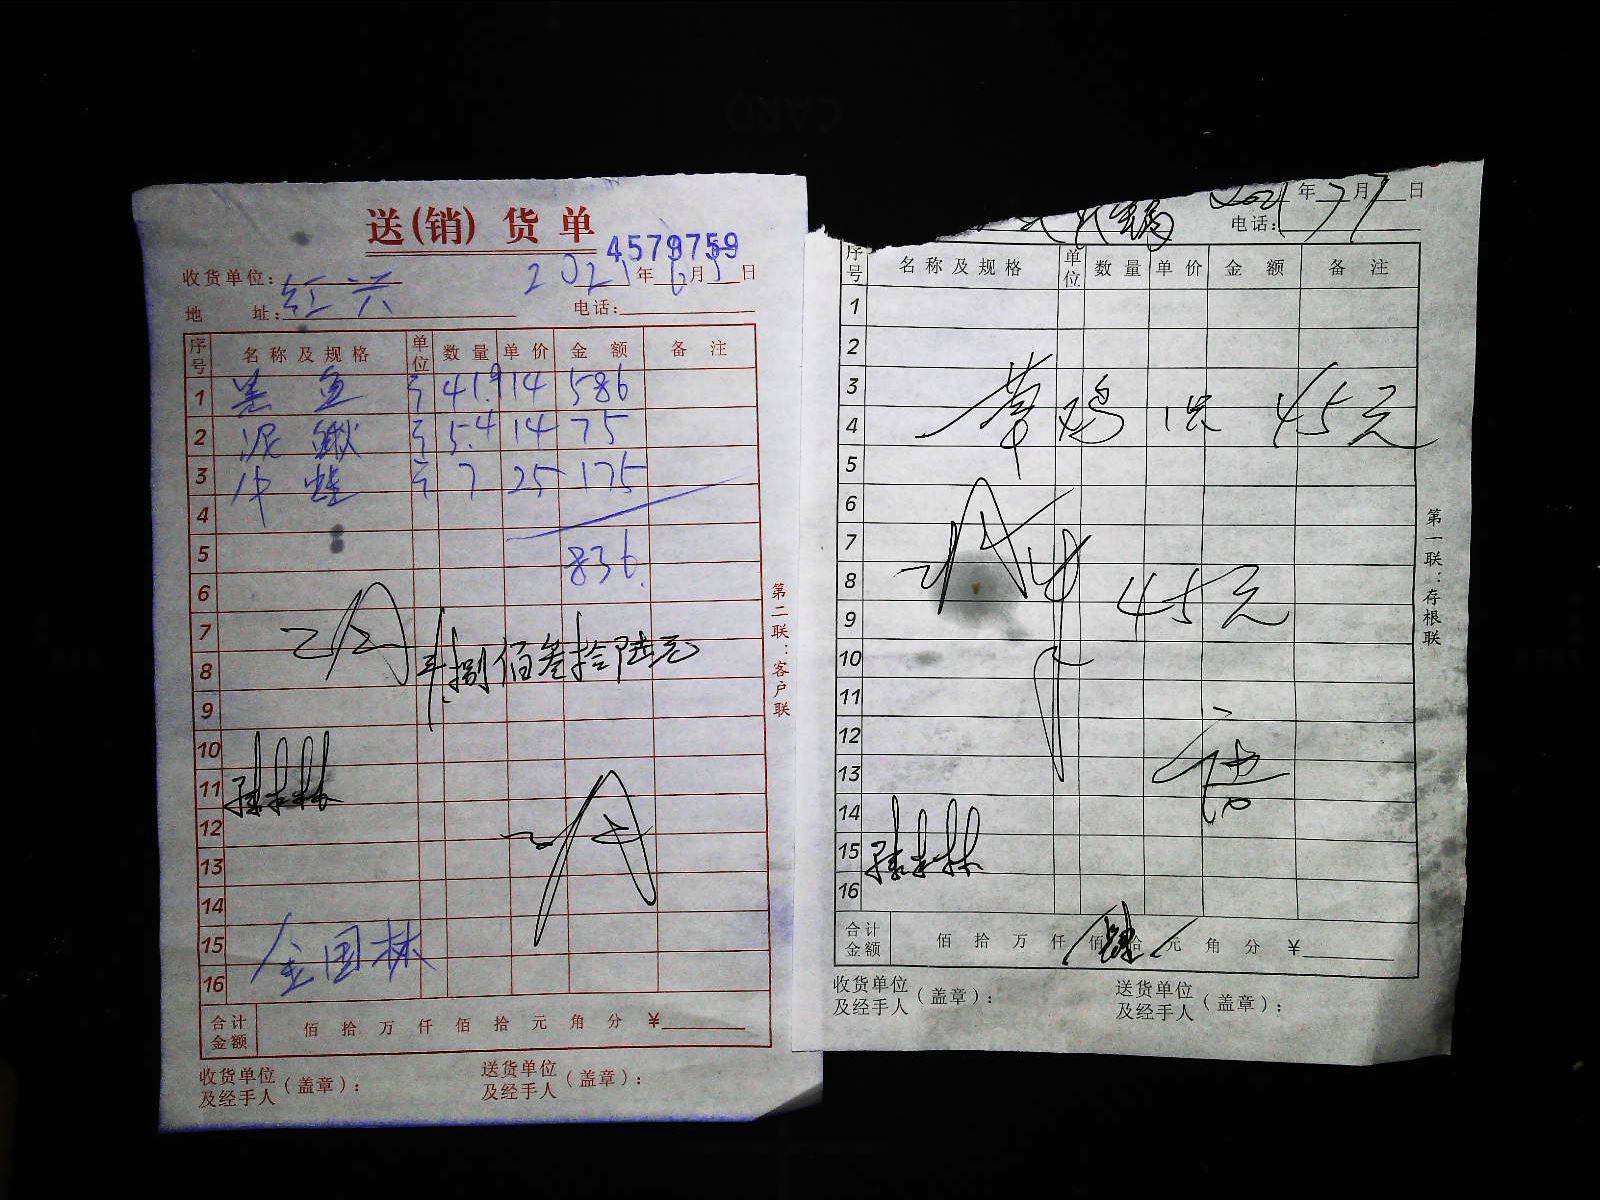 送(销)货单
4579759
收货单位: 红兴 2021年6月5日
地 址: 电话:
序号 名称及规格 单位 数量 单价 金额 备注
1 黑鱼 斤 41.9 14 586
2 泥鳅 斤 5.4 14 75
3 牛蛙 斤 7 25 175
4
5 836.
6
7
8 捌佰叁拾陆元
9
10
11
12
13
14
15 金国林
16
合计金额 佰 拾 万 仟 佰 拾 元 角 分 ¥
收货单位及经手人(盖章): 送货单位及经手人(盖章):
第二联:客户联
2021年7月7日
电话:
序号 名称及规格 单位 数量 单价 金额 备注
1
2
3
4 草鸡 1只 45元
5
6
7
8
9 45元
10
11
12
13
14
15
16
合计金额 佰 拾 万 仟 佰 拾 元 角 分 ¥
收货单位及经手人(盖章): 送货单位及经手人(盖章):
第一联:存根联
CARD